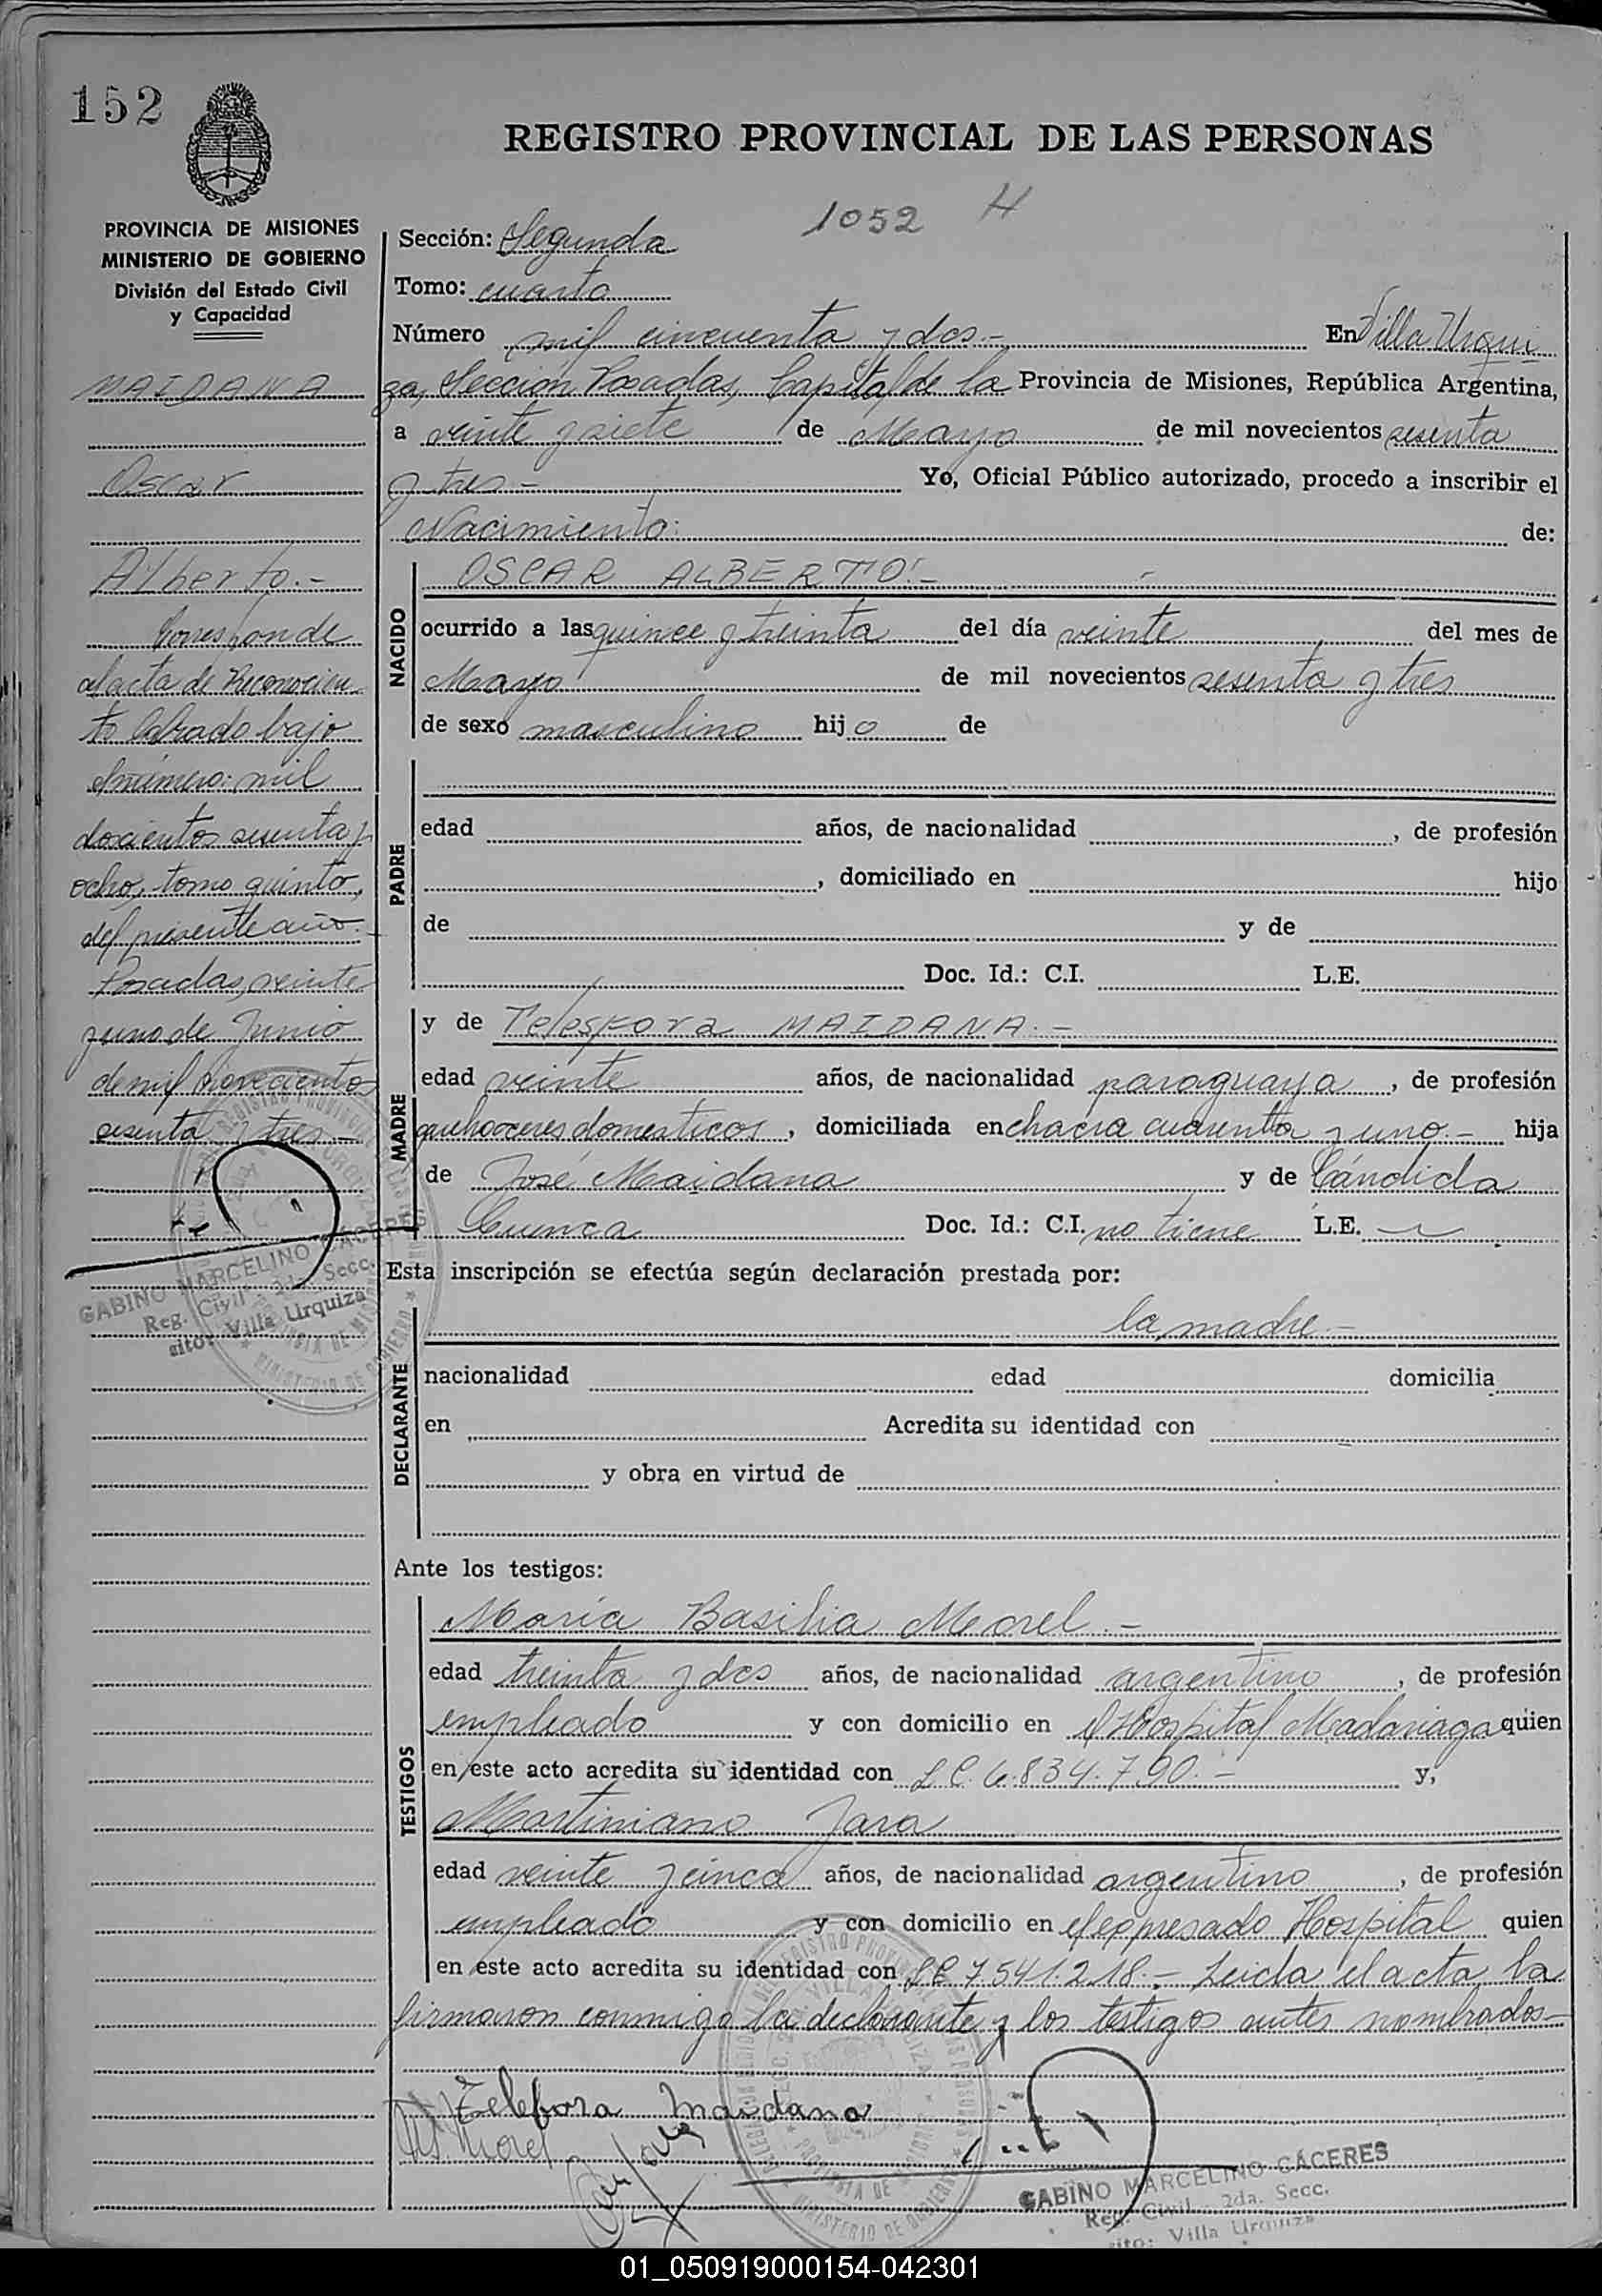 152
REGISTRO PROVINCIAL DE LAS PERSONAS
PROVINCIA DE MISIONES
MINISTERIO DE GOBIERNO
División del Estado Civil
y Capacidad
MAIDANA
Oscar
Alberto.-
Corresponde
al acta de Reconocimien
to labrado bajo
el número: mil
doscientos sesenta y
ocho, tomo quinto,
del presente año.-
Posadas, veinte
y uno de Junio
de mil novecientos
sesenta y tres.-
GABINO MARCELINO CÁCERES
Reg. Civil - 2da. Secc.
sito: Villa Urquiza
1052 H
Sección: Segunda
Tomo: cuarto
Número mil cincuenta y dos.- En Villa Urqui
za, Sección Posadas, Capital de la Provincia de Misiones, República Argentina,
a veinte y siete de Mayo de mil novecientos sesenta
y tres.- Yo, Oficial Público autorizado, procedo a inscribir el
Nacimiento: de:
NACIDO
OSCAR ALBERTO.-
ocurrido a las quince y treinta del día veinte del mes de
Mayo de mil novecientos sesenta y tres
de sexo masculino hijo de
PADRE
edad años, de nacionalidad , de profesión
, domiciliado en hijo
de y de
Doc. Id.: C.I. L.E.
MADRE
y de Telesfora MAIDANA.-
edad veinte años, de nacionalidad paraguaya, de profesión
quehaceres domesticos, domiciliada en chacra cuarenta y uno.- hija
de José Maidana y de Cándida
Cuenca Doc. Id.: C.I. no tiene L.E.
Esta inscripción se efectúa según declaración prestada por:
DECLARANTE
la madre.-
nacionalidad edad domicilia
en Acredita su identidad con
y obra en virtud de
Ante los testigos:
TESTIGOS
María Basilia Morel.-
edad treinta y dos años, de nacionalidad argentino, de profesión
empleado y con domicilio en el Hospital Madariaga quien
en este acto acredita su identidad con L.C. 6.834.790.- y,
Martiniano Jara
edad veinte y cinco años, de nacionalidad argentino, de profesión
empleado y con domicilio en el expresado Hospital quien
en este acto acredita su identidad con LE 7.541.218.- Leida el acta la
firmaron conmigo la declarante y los testigos antes nombrados.-
Telefora Maidana
Morel
GABINO MARCELINO CÁCERES
Reg. Civil - 2da. Secc.
sito: Villa Urquiza
01_050919000154-042301